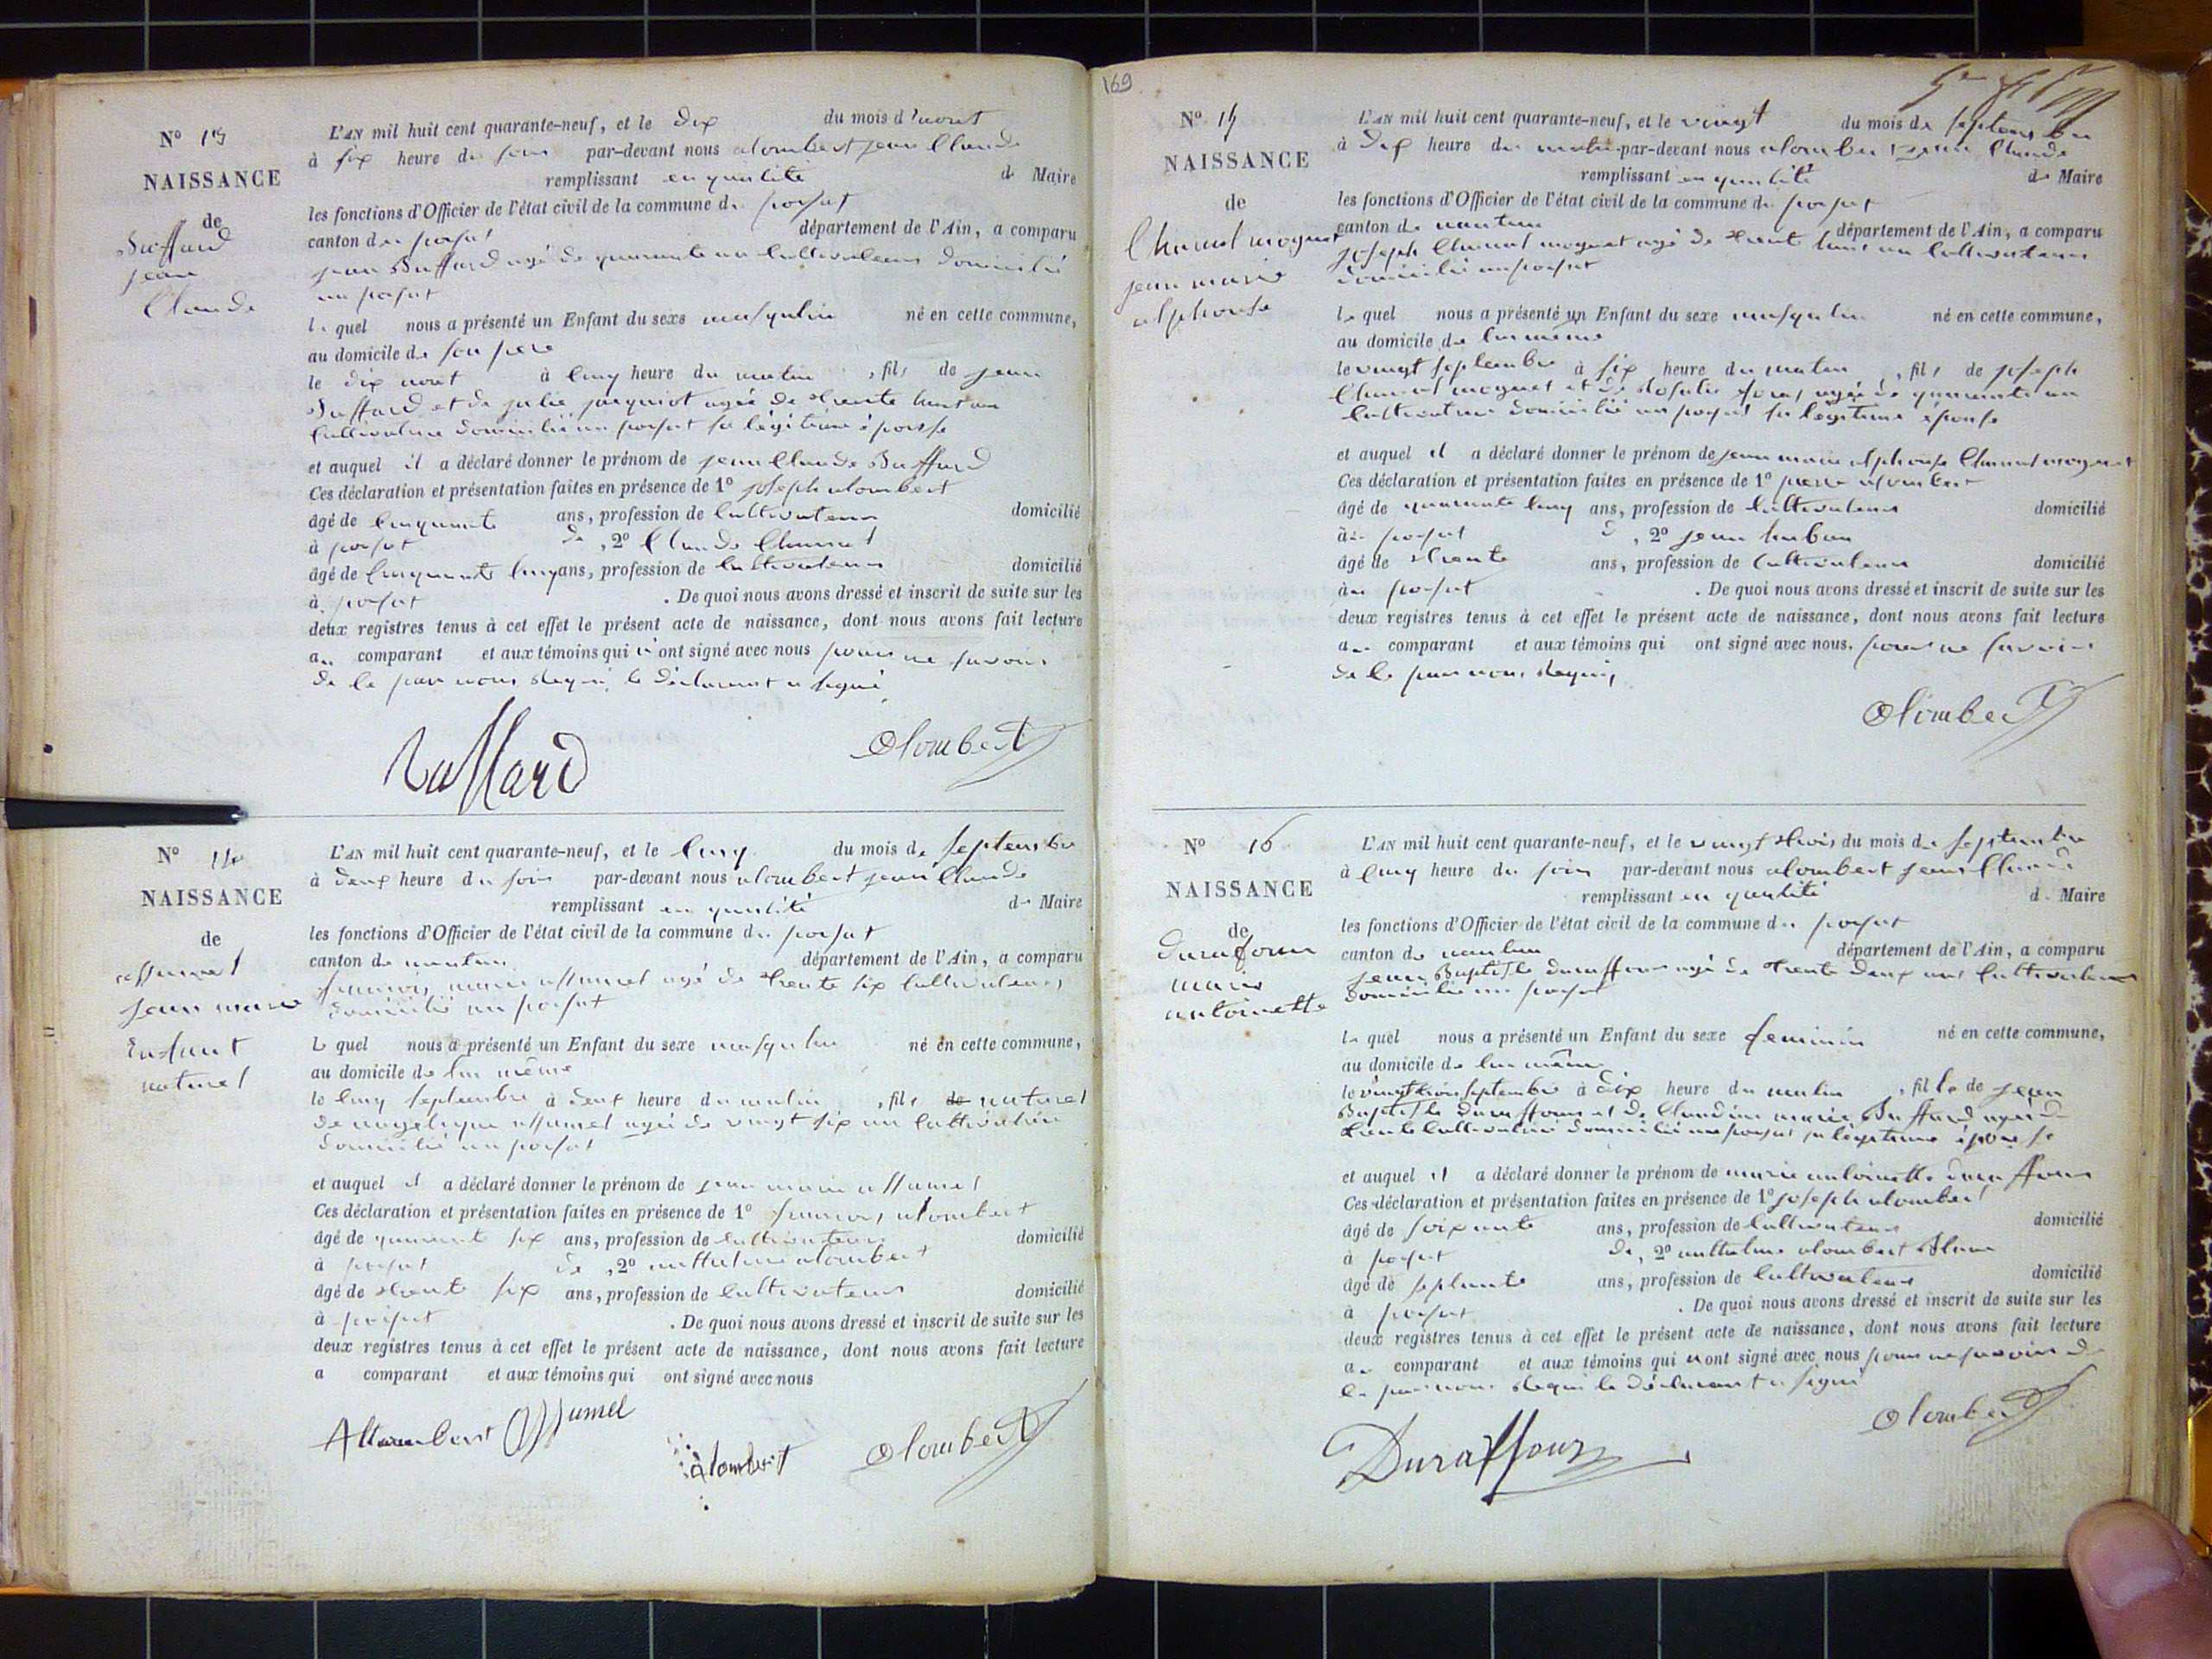 N° 13
NAISSANCE
de
Buffard
jean
Claude
L'AN mil huit cent quarante-neuf, et le dix du mois d'aout
à six heure du soir par-devant nous alombert jean Claude
remplissant en qualité de Maire
les fonctions d'Officier de l'état civil de la commune du poizat
canton du poizat département de l'Ain, a comparu
jean Buffard agé de quarante un Cultivateur domicilié
au poizat
lequel nous a présenté un Enfant du sexe masqulin né en cette commune,
au domicile de son pere
le dix aout à Cinq heure du matin, fils de jean
Buffard et de julie jaquiot agée de trente huit an
Cultivatrice domicilié au poizat sa légitime épouse
et auquel il a déclaré donner le prénom de jean Claude Buffard
Ces déclaration et présentation faites en présence de 1° joseph alombert
âgé de Cinquante ans, profession de Cultivateur domicilié
à poizat de, 2° Claude
âgé de Cinquante Cinq ans, profession de Cultivateur domicilié
à poizat. De quoi nous avons dressé et inscrit de suite sur les
deux registres tenus à cet effet le présent acte de naissance, dont nous avons fait lecture
au comparant et aux témoins qui n'ont signé avec nous pour ne savoir
de le par nous requi, le déclarant a signé
Buffard alombert
N° 14
NAISSANCE
de
assumel
jean marie
Enfant
naturel
L'AN mil huit cent quarante-neuf, et le Cinq du mois de septembre
à deux heure du soir par-devant nous alombert jean Claude
remplissant en qualité de Maire
les fonctions d'Officier de l'état civil de la commune du poizat
canton de nantua département de l'Ain, a comparu
francois marie assumel agé de trente six Cultivateur
domicilié au poizat
lequel nous a présenté un Enfant du sexe masqulin né en cette commune,
au domicile de lui même
le Cinq septembre à deux heure du matin, fils de naturel
de angelique assumel agée de vingt six an Cultivatrice
domicilié au poizat
et auquel il a déclaré donner le prénom de jean marie assumel
Ces déclaration et présentation faites en présence de 1° francois alombert
âgé de quarante six ans, profession de Cultivateur domicilié
à poizat de, 2° anthelme alombert
âgé de trente six ans, profession de Cultivateur domicilié
à poizat. De quoi nous avons dressé et inscrit de suite sur les
deux registres tenus à cet effet le présent acte de naissance, dont nous avons fait lecture
a comparant et aux témoins qui ont signé avec nous
Allombert Assumel
alombert alombert
169
N° 15
NAISSANCE
de
jean marie
alphonse
L'AN mil huit cent quarante-neuf, et le vingt du mois de septembre
à dix heure du matin par-devant nous alombert jean Claude
remplissant en qualité de Maire
les fonctions d'Officier de l'état civil de la commune du poizat
canton de nantua département de l'Ain, a comparu
joseph moguet agé de trente huit an Cultivateur
domicilié au poizat
lequel nous a présenté un Enfant du sexe masqulin né en cette commune,
au domicile de lui même
le vingt septembre à six heure du matin, fils de joseph
moguet et de rosalie agée de quarante an
Cultivatrice domicilié au poizat sa légitime épouse
et auquel il a déclaré donner le prénom de jean marie alphonse
Ces déclaration et présentation faites en présence de 1° pierre alombert
âgé de quarante Cinq ans, profession de Cultivateur domicilié
au poizat d, 2° jean
âgé de trente ans, profession de Cultivateur domicilié
au poizat. De quoi nous avons dressé et inscrit de suite sur les
deux registres tenus à cet effet le présent acte de naissance, dont nous avons fait lecture
au comparant et aux témoins qui ont signé avec nous, pour ne savoir
de le par nous requis
alombert
N° 16
NAISSANCE
de
Duraffour
marie
antoinette
L'AN mil huit cent quarante-neuf, et le vingt trois du mois de septembre
à Cinq heure du soir par-devant nous alombert jean Claude
remplissant en qualité de Maire
les fonctions d'Officier de l'état civil de la commune du poizat
canton de nantua département de l'Ain, a comparu
jean Baptiste duraffour agé de trente deux ans Cultivateur
domicilié au poizat
lequel nous a présenté un Enfant du sexe feminin né en cette commune,
au domicile de lui même
le vingt trois septembre à dix heure du matin, fille de jean
Baptiste duraffour et de Claudine marie Buffard agée de
trente Cultivatrice domicilié au poizat sa légitime épouse
et auquel il a déclaré donner le prénom de marie antoinette duraffour
Ces déclaration et présentation faites en présence de 1° joseph alombert
âgé de soixante ans, profession de Cultivateur domicilié
à poizat de, 2° anthelme alombert
âgé de septante ans, profession de Cultivateur domicilié
à poizat. De quoi nous avons dressé et inscrit de suite sur les
deux registres tenus à cet effet le présent acte de naissance, dont nous avons fait lecture
au comparant et aux témoins qui n'ont signé avec nous pour ne savoir de
le par nous requi le déclarant a signé
alombert
Duraffour